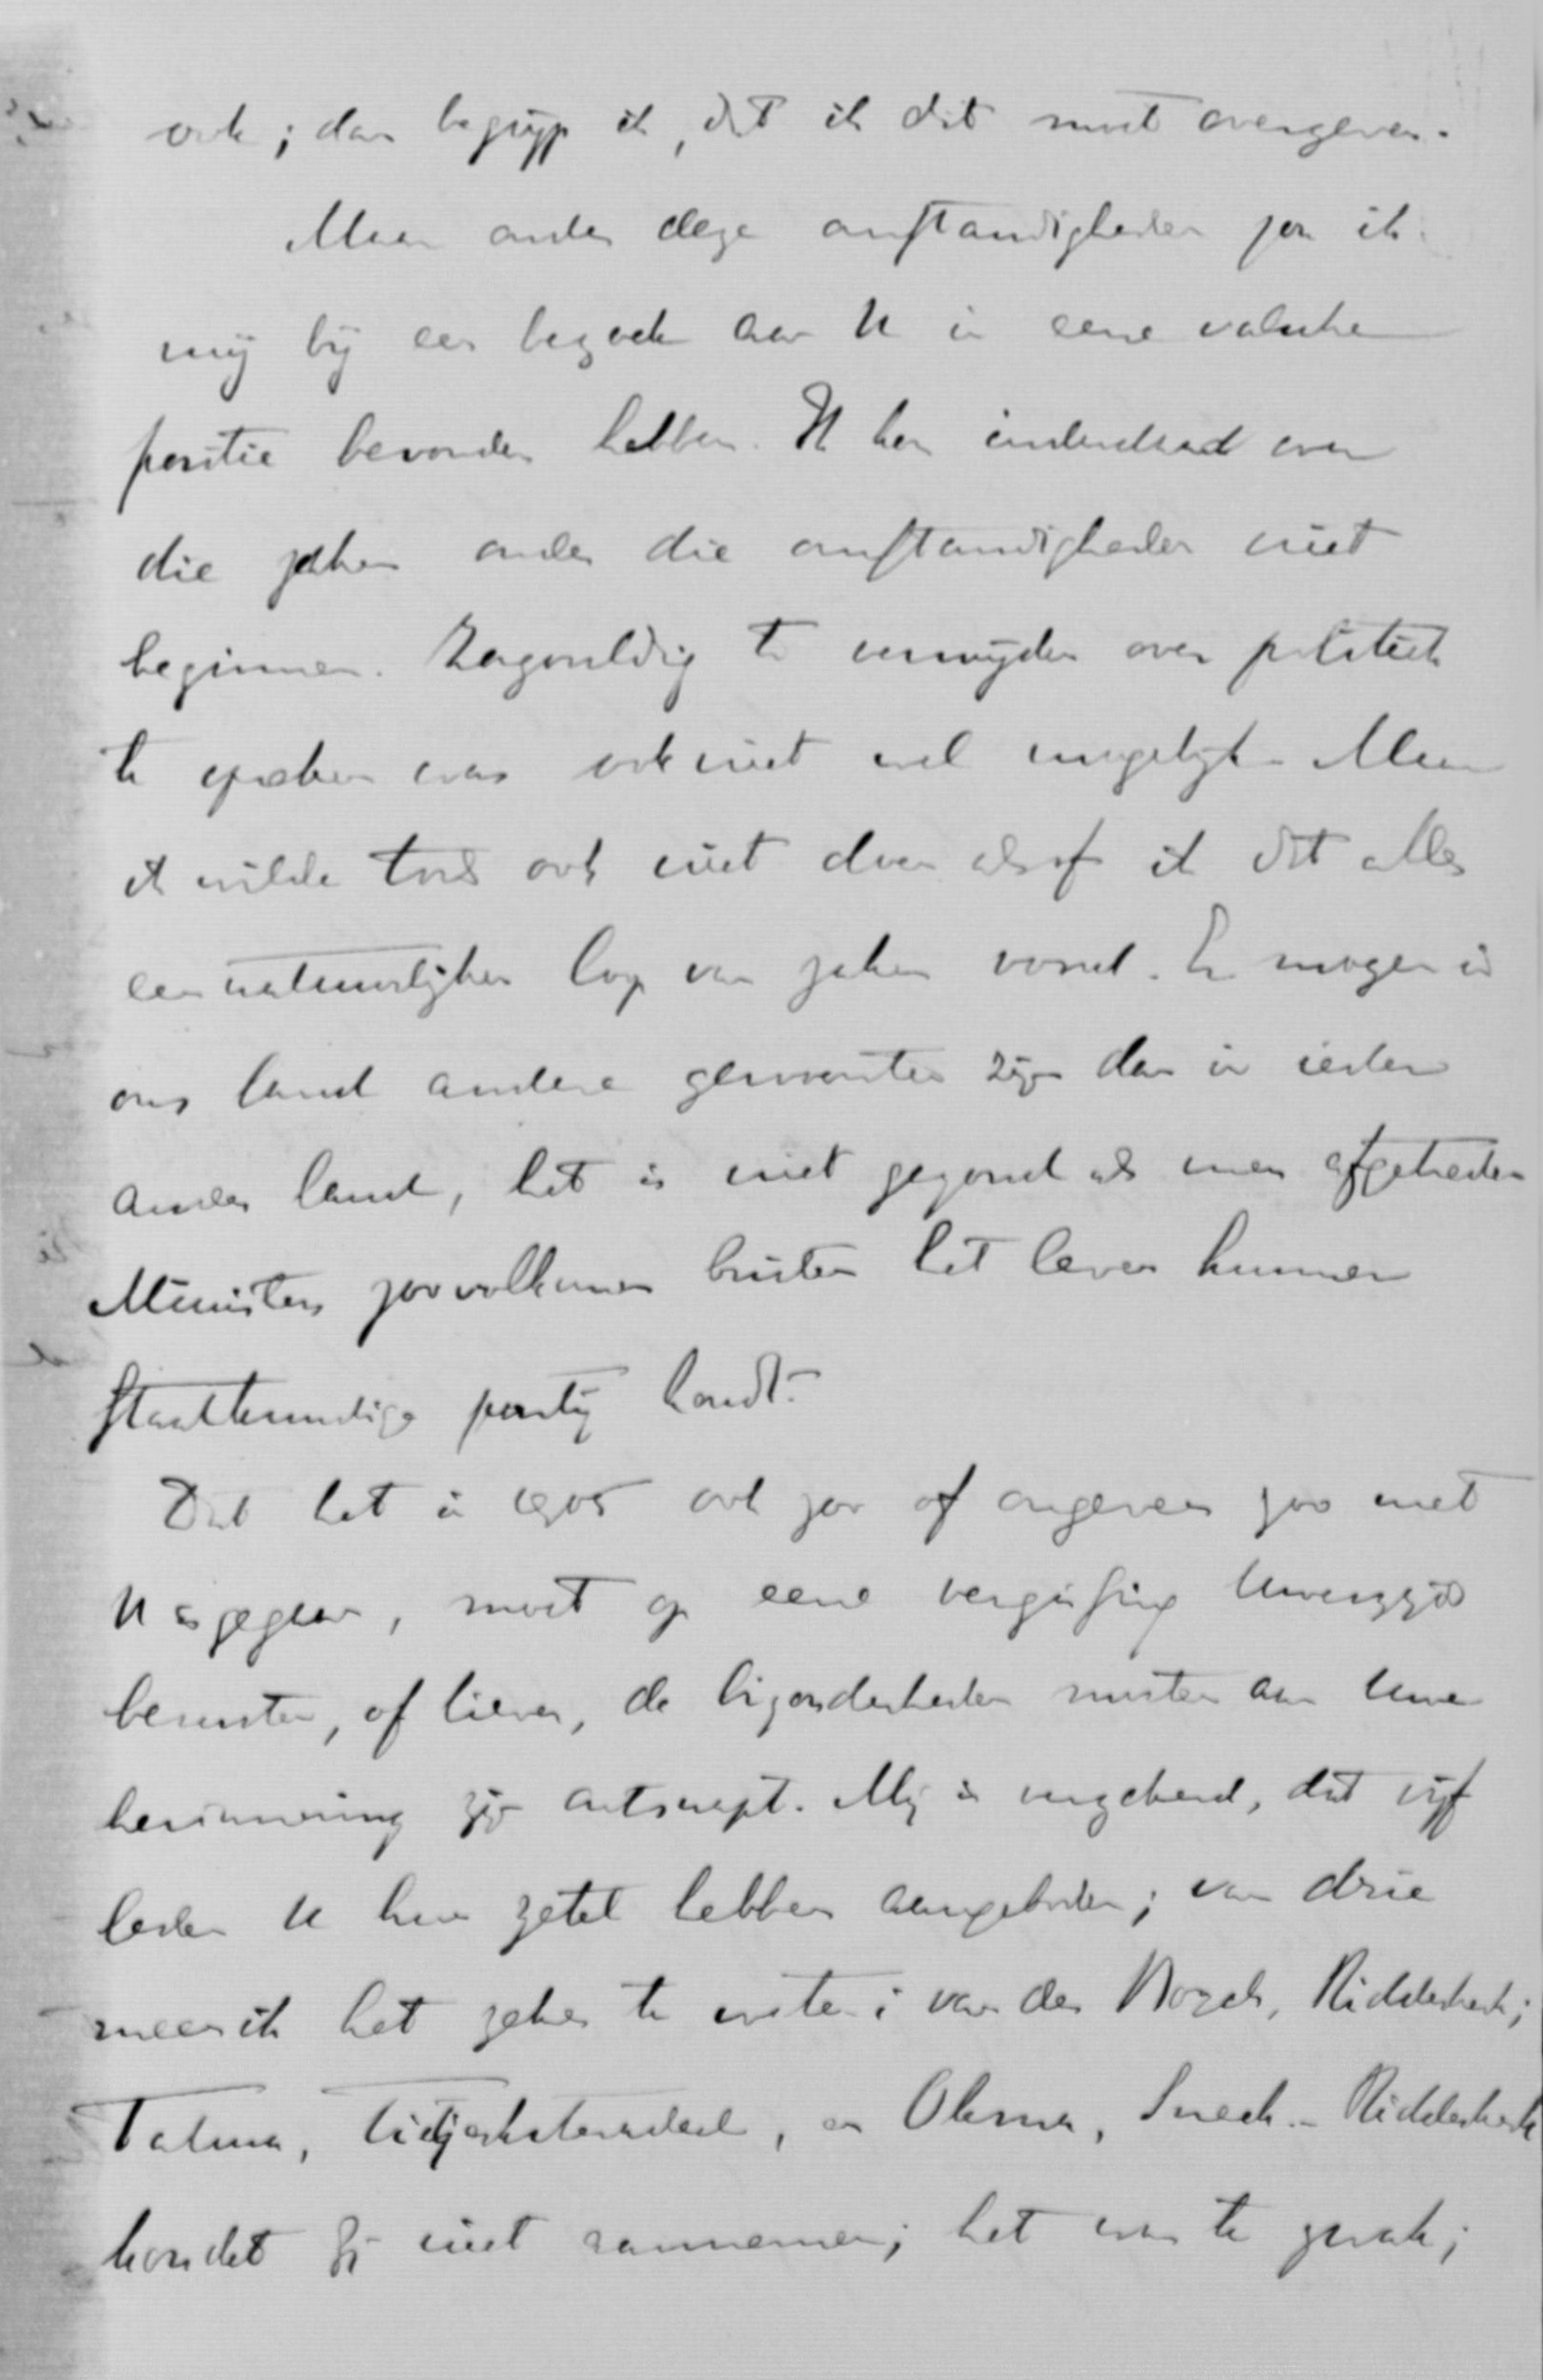 ook; dan begrijp ik, dat ik dit moet overgeven.
Maar onder deze omstandigheden zou ik
mij bij een bezoek aan U in eene valsche
positie bevonden hebben. Ik kon inderdaad over
die zaken onder die omstandigheden niet
beginnen. Zorgvuldig te vermijden over politiek
te spreken was ook niet wel mogelijk. Maar
ik wilde toch ook niet doen alsof ik dit alles
een natuurlijken loop van zaken vond. Er mogen in
ons land andere gewoonten zijn dan in ieder
ander land, het is niet gezond als men afgetreden
Ministers zoo volkomen buiten het leven hunner
staatkundige partij houdt.
Dat het in 1905 ook zoo of ongeveer zoo met
U is gegaan, moet op eene vergissing Uwerzijds
berusten, of liever, de bijzonderheden moeten aan Uwe
herinnering zijn ontsnapt. Mij is verzekerd, dat vijf
leden U hun zetel hebben aangeboden; van drie
meen ik het zeker te weten: van den Bosch, Ridderkerk;
Talma, Tietjerksteradeel, en Okma, Sneek. - Ridderkerk
kondet Gij niet aannemen; het was te zwak;